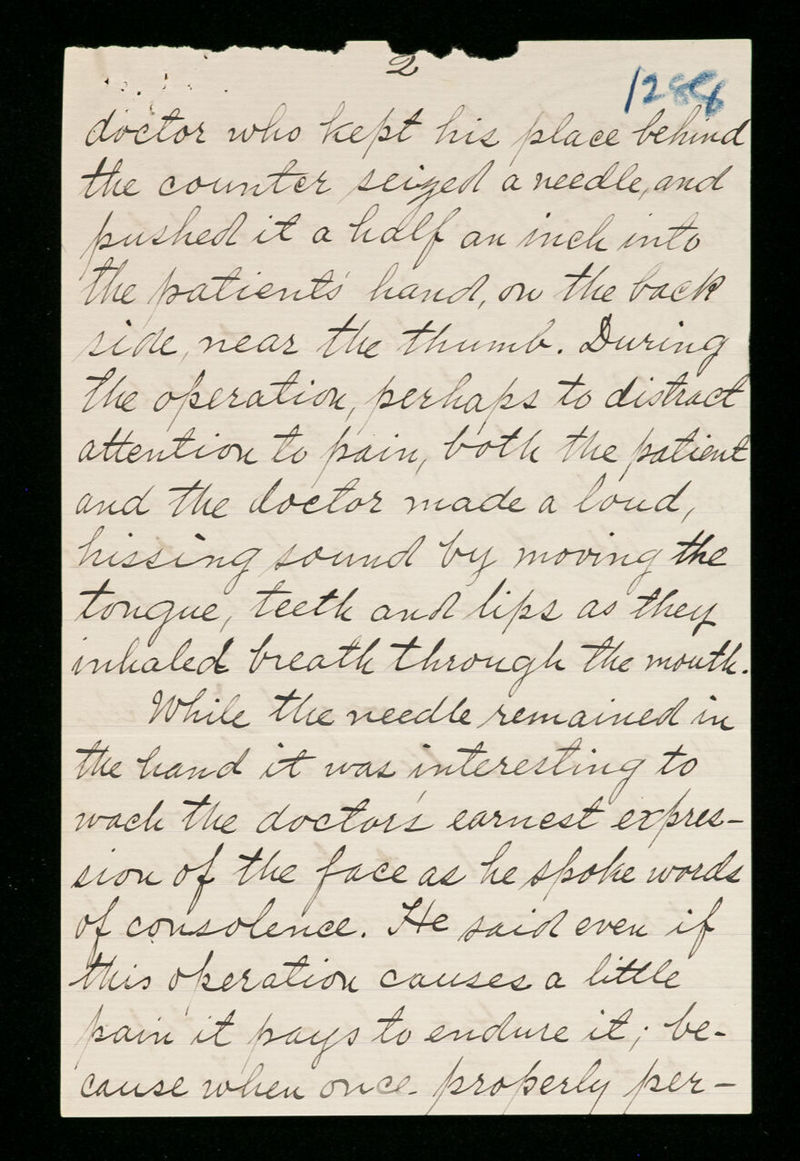 2
1288
doctor who kept his place behind
the counter seized a needle, and
pushed it a half an inch into
the patients' hand, on the back
side, near the thumb. During
the operation, perhaps to distract
attention to pain, both the patient
and the doctor made a loud,
hissing sound by moving the
tongue, teeth and lips as they
inhaled breath through the mouth.
While the needle remained in
the hand it was interesting to
wach the doctor's earnest expres-
sion of the face as he spoke words
of consolence. He said even if
this operation causes a little
pain it pays to endure it; be-
cause when once properly per-